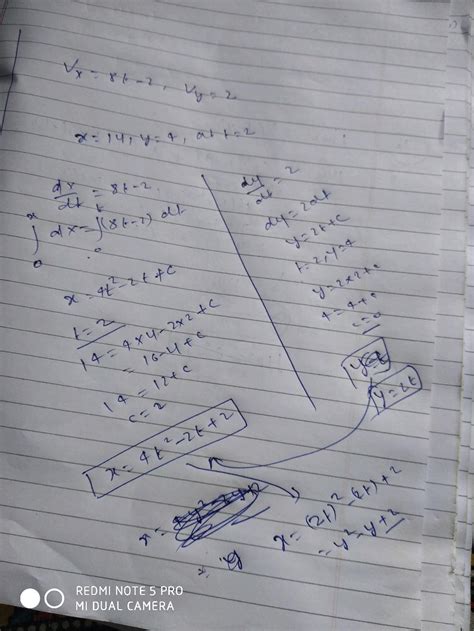 Vx = 8t-2, Vy = 2
x=14, y=4, at t=2
dx/dt = 8t-2
∫ dx = ∫(8t-2) dt
x t
0 0
x = 4t²-2t+c
t=2
14 = 4x4-2x2+c
= 16-4+c
14 = 12+c
c=2
x = 4t²-2t+2
dy/dt = 2
dy = 2dt
y = 2t+c
t=2, y=4
y = 2x2+c
4 = 4+c
c=0
y=2t
x = (2t)²-(2t)+2
= y²-y+2
REDMI NOTE 5 PRO
MI DUAL CAMERA